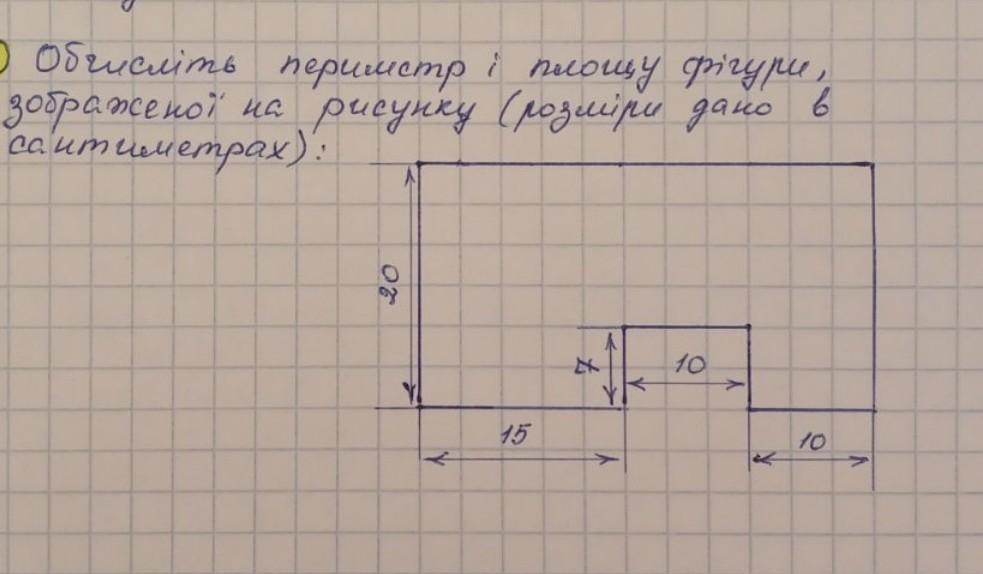 Обчисліть периметр і площу фігури,
зображеної на рисунку (розміри дано в
сантиметрах):
20
7
10
15
10